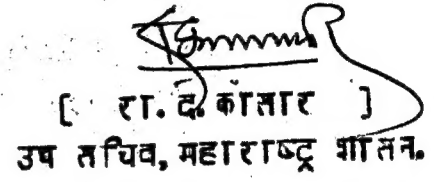 [ रा. द. कासार ]
उप सचिव, महाराष्ट्र शासन.